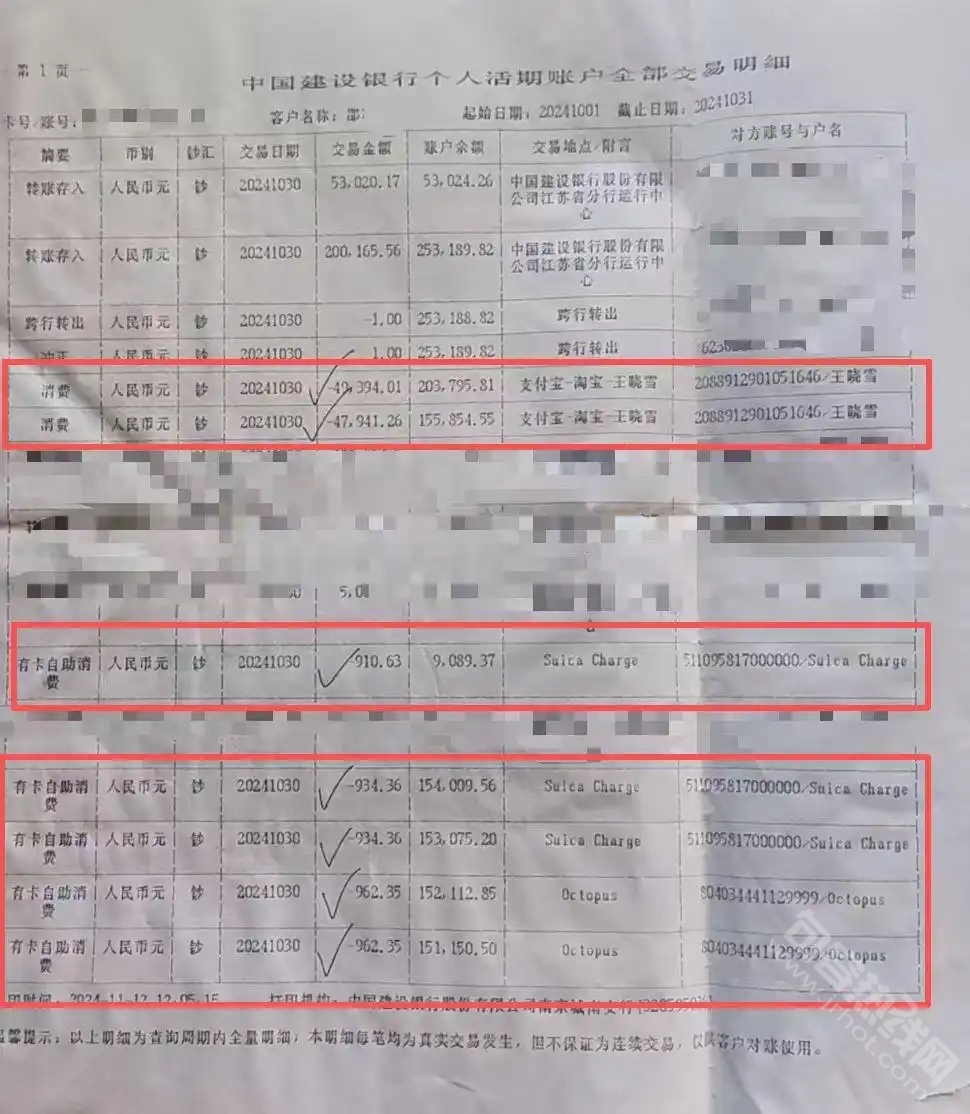 第 1 页
中国建设银行个人活期账户全部交易明细
卡号/账号: 客户名称: 起始日期: 20241001 截止日期: 20241031
摘要 币别 钞汇 交易日期 交易金额 账户余额 交易地点/附言 对方账号与户名
转账存入 人民币元 钞 20241030 53,020.17 53,024.26 中国建设银行股份有限
公司江苏省分行运行中
心
转账存入 人民币元 钞 20241030 200,165.56 253,189.82 中国建设银行股份有限
公司江苏省分行运行中
心
跨行转出 人民币元 钞 20241030 -1.00 253,188.82 跨行转出
冲正 人民币元 钞 20241030 1.00 253,189.82 跨行转出
消费 人民币元 钞 20241030 -49,394.01 203,795.81 支付宝-淘宝-王晓雪 2088912901051646/王晓雪
消费 人民币元 钞 20241030 -47,941.26 155,854.55 支付宝-淘宝-王晓雪 2088912901051646/王晓雪
有卡自助消 人民币元 钞 20241030 -910.63 9,089.37 Suica Charge 511095817000000/Suica Charge
费
有卡自助消 人民币元 钞 20241030 -934.36 154,009.56 Suica Charge 511095817000000/Suica Charge
费
有卡自助消 人民币元 钞 20241030 -934.36 153,075.20 Suica Charge 511095817000000/Suica Charge
费
有卡自助消 人民币元 钞 20241030 -962.35 152,112.85 Octopus 804034441129999/Octopus
费
有卡自助消 人民币元 钞 20241030 -962.35 151,150.50 Octopus 804034441129999/Octopus
费
印时间: 2024-11-12 12.05.15 打印机构: 中国建设银行股份有限公司南京城南支行
温馨提示: 以上明细为查询周期内全量明细, 本明细每笔均为真实交易发生, 但不保证为连续交易, 仅供客户对账使用。